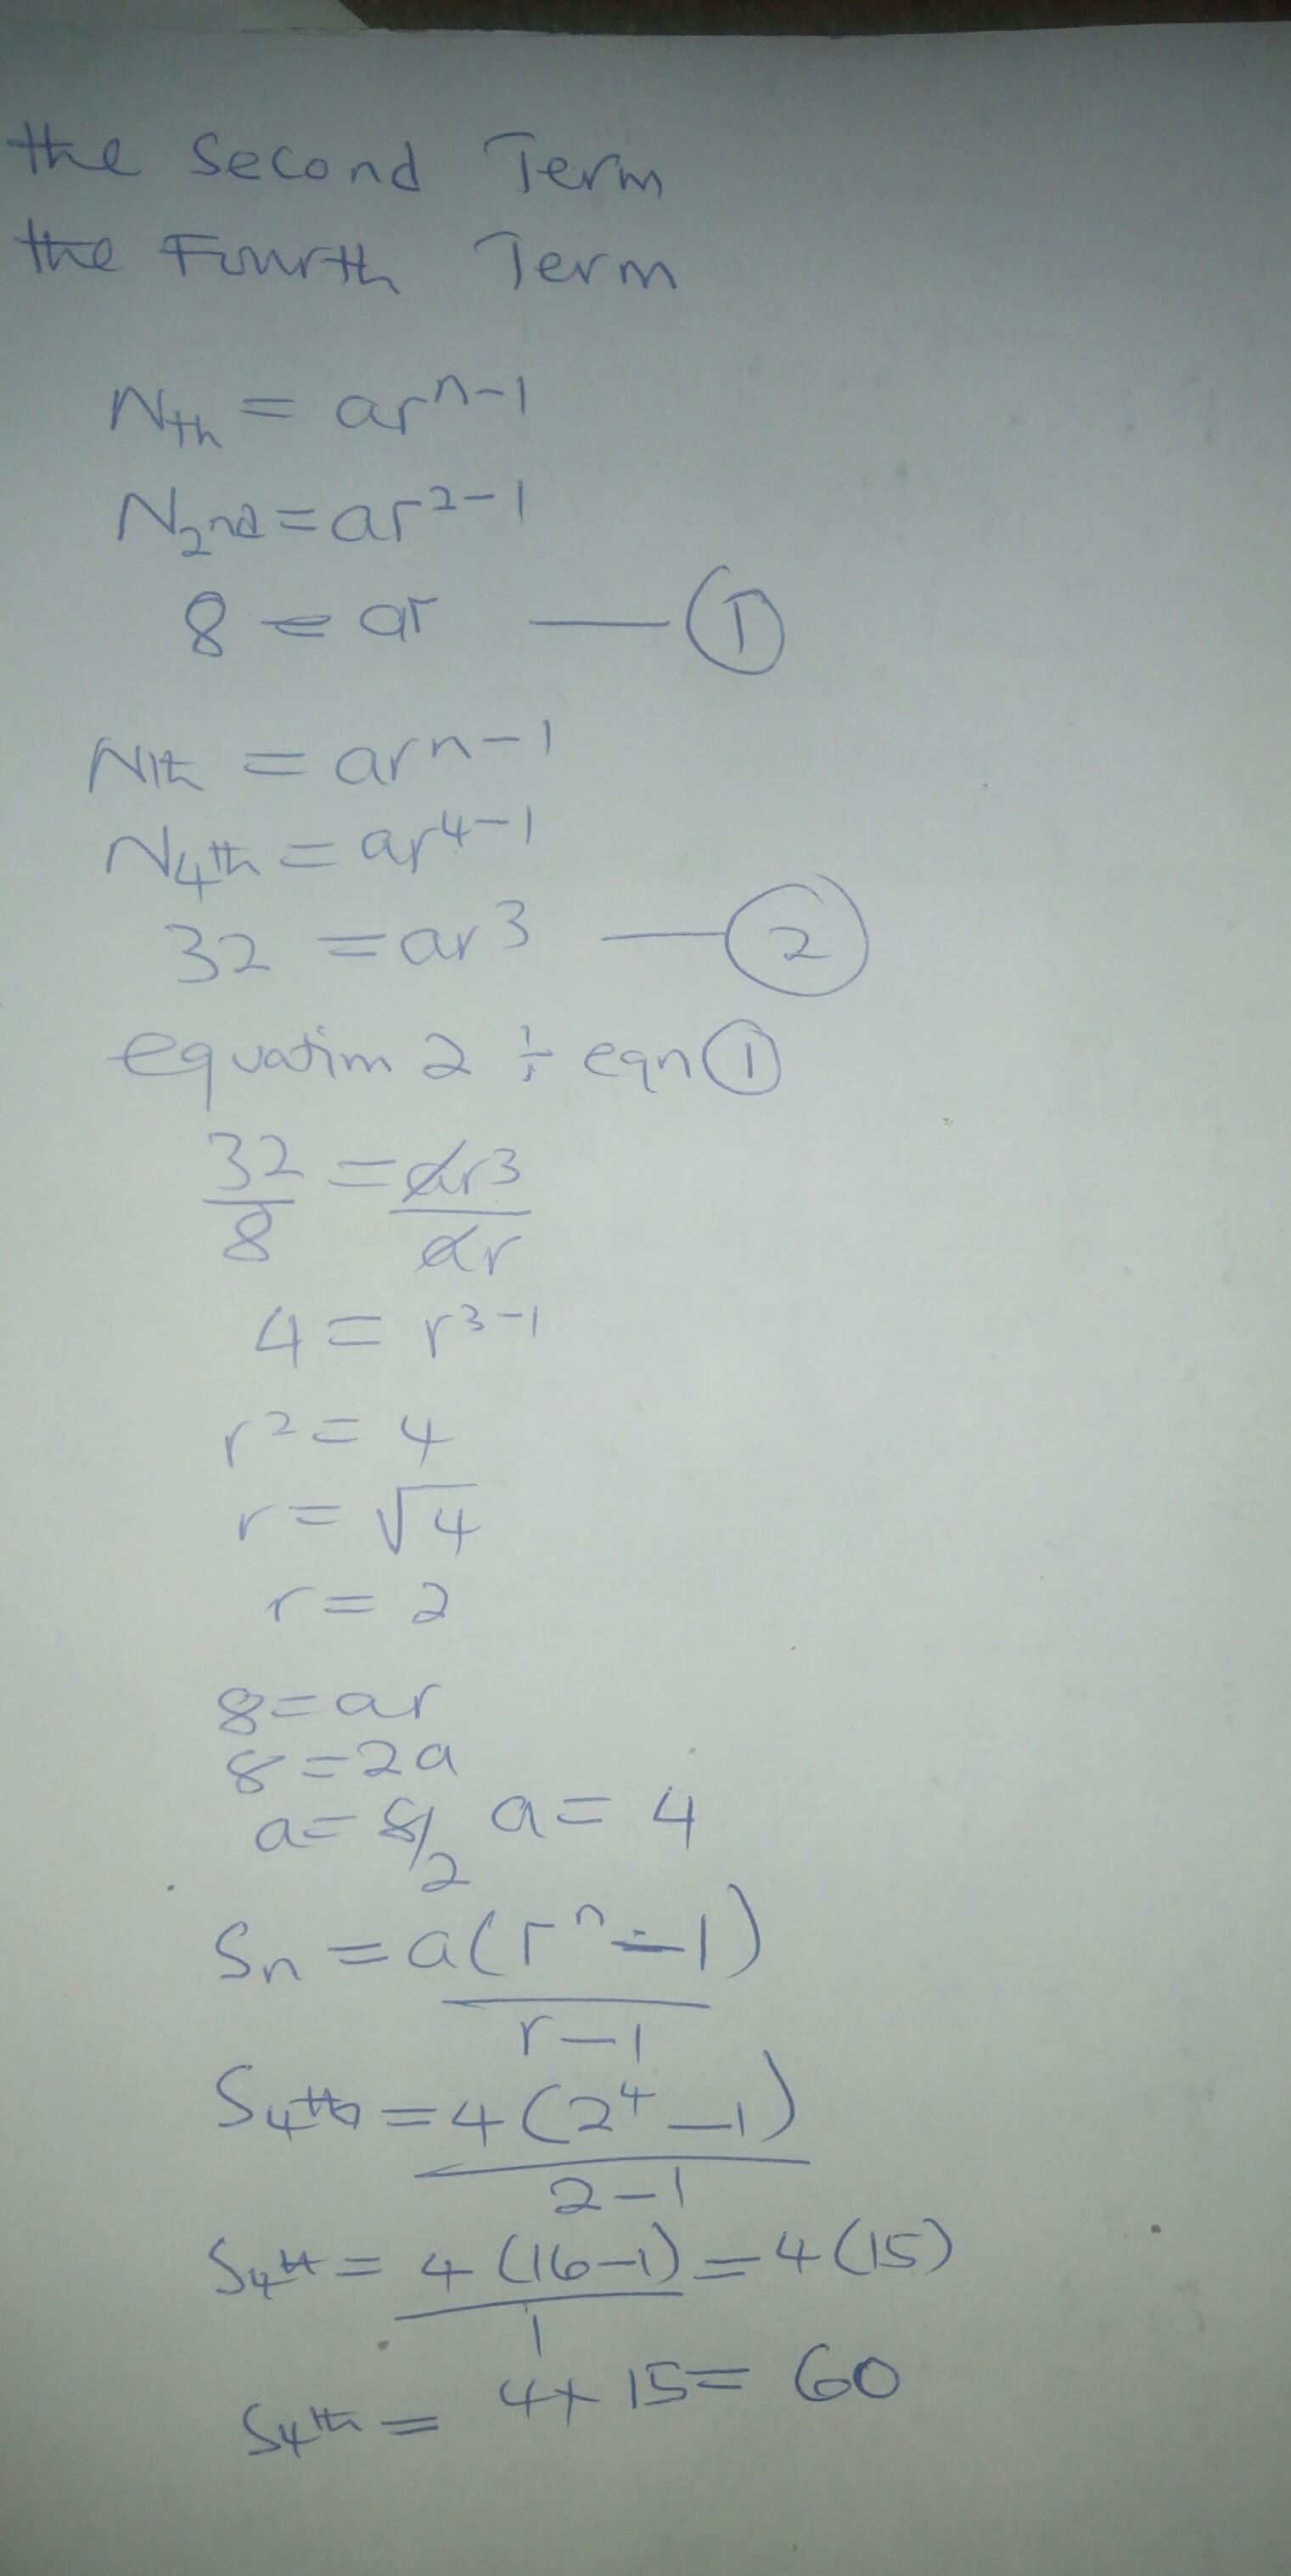 the Second Term
the Fourth Term
Nth = ar^n-1
N2nd = ar^2-1
8 = ar — ①
Nth = ar^n-1
N4th = ar^4-1
32 = ar^3 — ②
equation 2 ÷ eqn ①
32/8 = ar^3/ar
4 = r^3-1
r^2 = 4
r = √4
r = 2
8 = ar
8 = 2a
a = 8/2 a = 4
Sn = a(r^n - 1)/r - 1
S4th = 4(2^4 - 1)/2 - 1
S4th = 4(16-1)/1 = 4(15)
S4th = 4 × 15 = 60